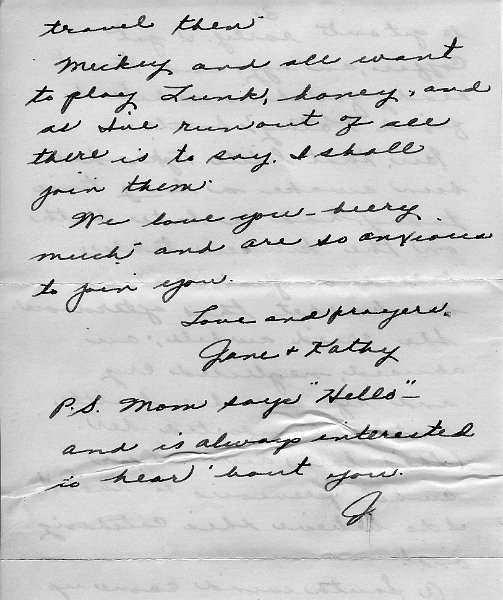 travel then.
Mickey and all want
to play Tunk, honey, and
as I've run out of all
there is to say. I shall
join them.
We love you - bery
much and are so anxious
to join you.
Love and prayers,
Jane & Kathy
P.S. Mom says "Hello" -
and is always interested
to hear 'bout you.
J